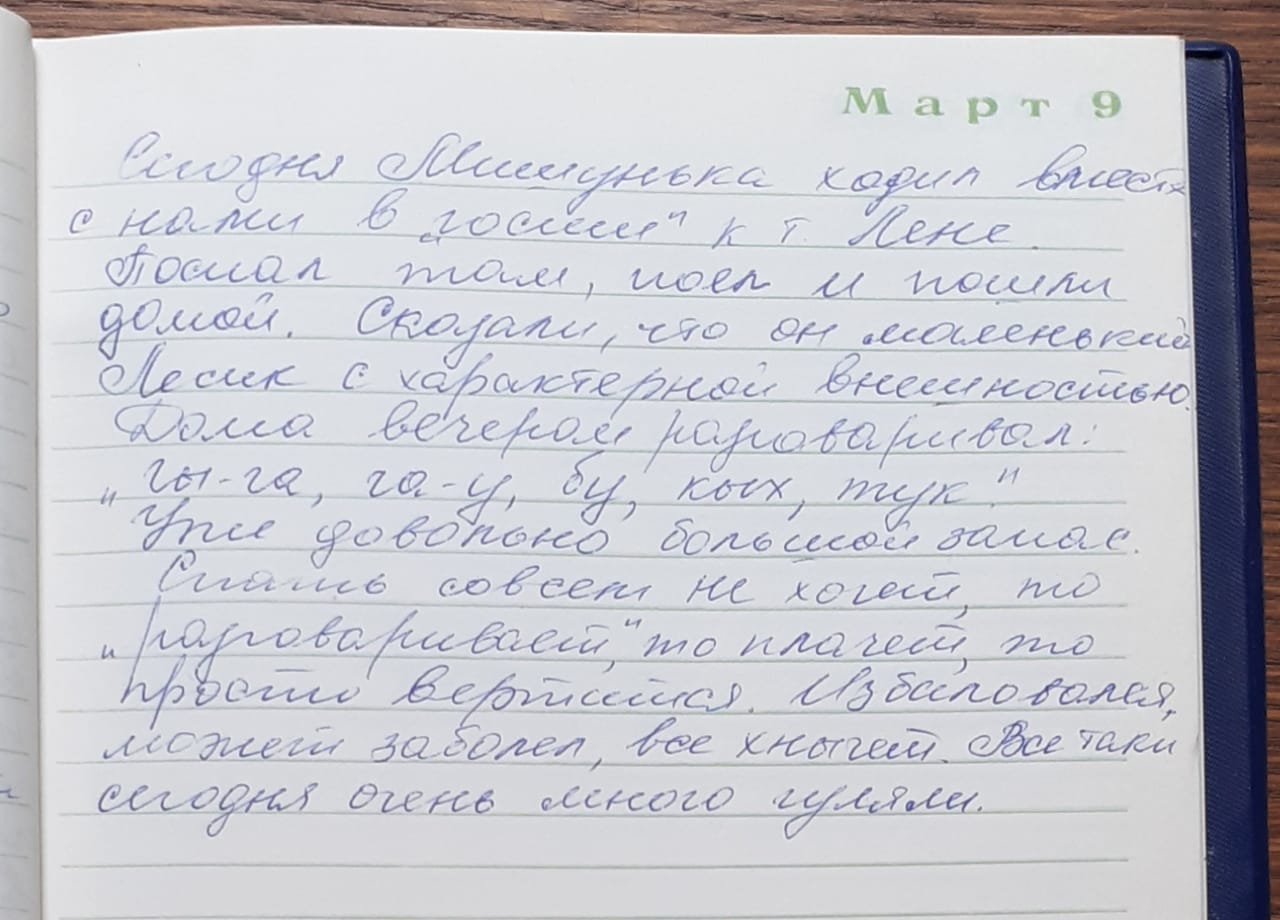 Март 9
Сегодня Мишунька ходил вместе
с нами в „гости" к т. Лене.
Поспал там, поел и пошли
домой. Сказали, что он маленький
Лесик с характерной внешностью.
Дома вечером разговаривал:
„гы-га, га-у, бу, кых, тук"
Уже довольно большой запас.
Спать совсем не хочет, то
„разговаривает", то плачет, то
просто вертится. Избаловался,
может заболел, все хнычет. Все таки
сегодня очень много гуляли.